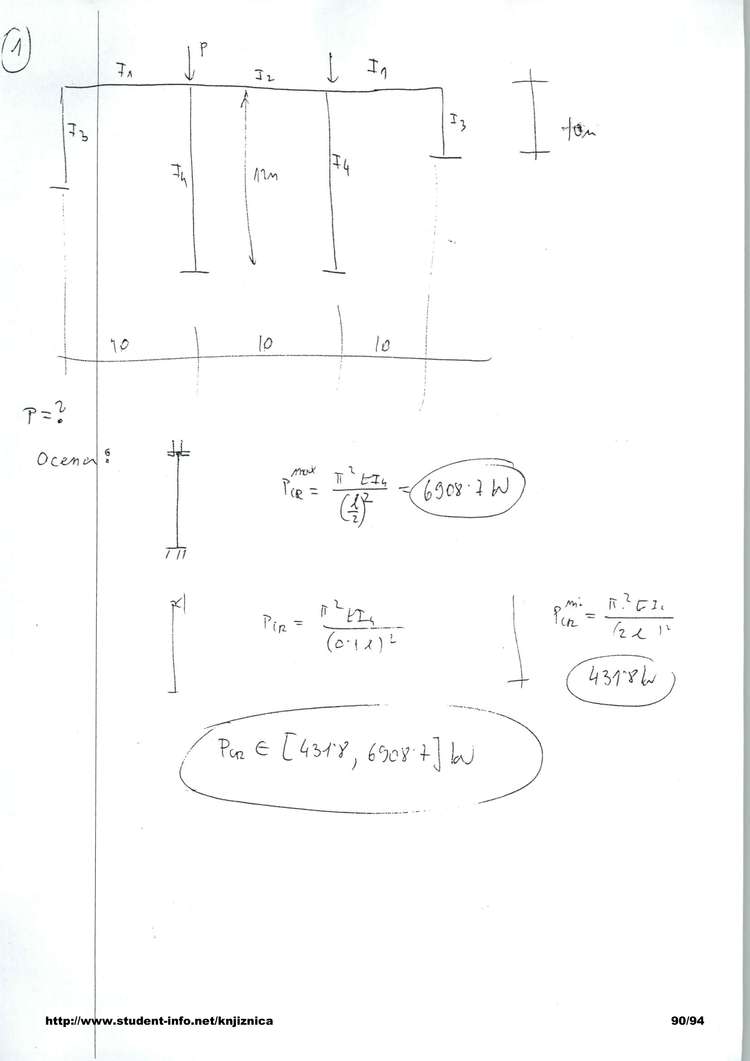 1
P
I₁ I₂ I₁
I₃ I₃
I₄ 12m I₄
10 10 10
P=?
Ocena:
P_CR^max = π²EI₄/(l/2)² = 6908.7 kN
P_CR = π²EI₄/ l)²
P_CR^min = π²EI₄/(2l)²
431.8 kN
P_CR ∈ [431.8, 6908.7] kN
http://www.student-info.net/knjiznica
90/94